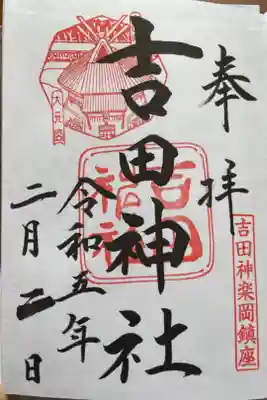 奉拝
吉田神楽岡鎮座
吉田神社
大元宮
令和五年
二月二日